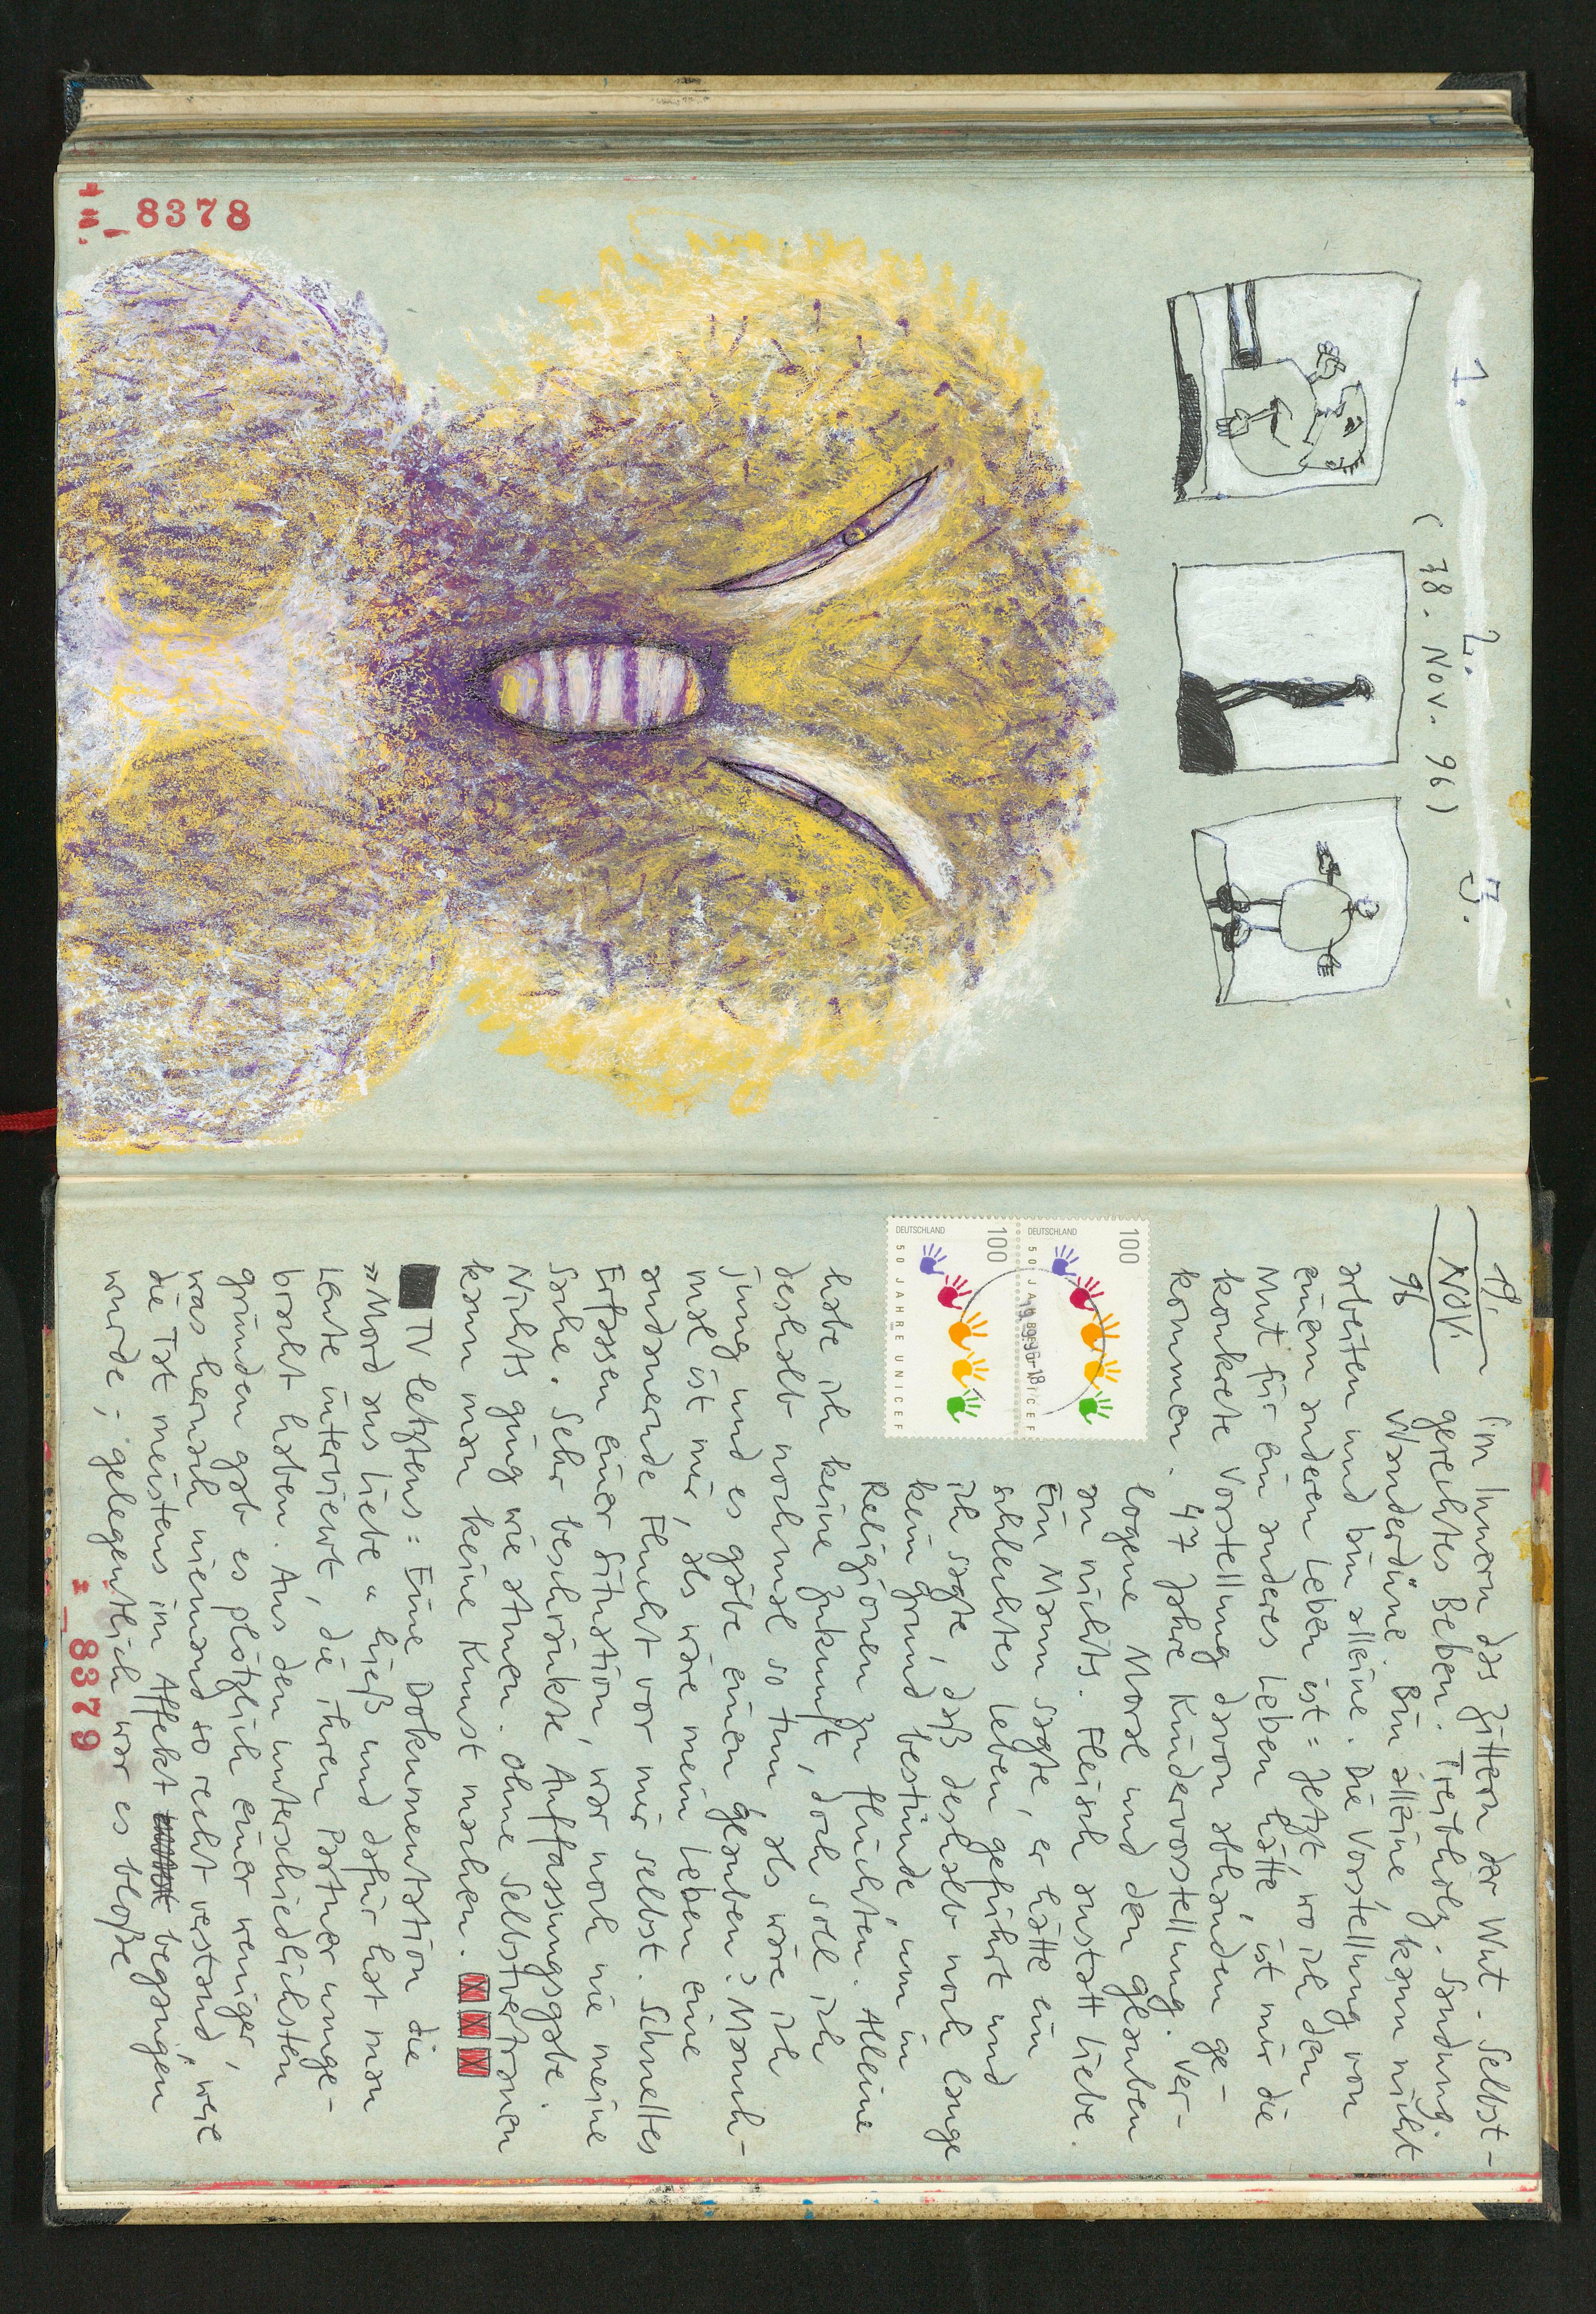 1.
2.
3.
(18. Nov. 96)
=_8378
19.
NOV.
96
Im Innern das Zittern der Wut. Selbst-
gerechtes Beben. Treibholz. Sandung.
Wanderdüne. Bin alleine kann nicht
arbeiten und bin alleine. Die Vorstellung von
einem anderen Leben ist = Jetzt, wo ich den
Mut für ein anderes Leben hätte, ist mir die
konkrete Vorstellung davon abhanden ge-
kommen. 47 Jahre Kindervorstellung. Ver-
logene Moral und den Glauben
an nichts. Fleisch anstatt Liebe.
Ein Mann sagte, er hätte ein
schlechtes Leben geführt und
ich sagte, daß deshalb noch lange
kein Grund bestünde, um in
Religionen zu flüchten. Alleine
habe ich keine Zukunft, doch soll ich
deshalb nochmal so tun als wäre ich
jung und es gäbe einen Glauben? Manch-
mal ist mir, als wäre mein Leben eine
andauernde Flucht vor mir selbst. Schnelles
Erfassen einer Situation, war noch nie meine
Sache. Sehr beschränkte Auffassungsgabe.
Nichts ging wie atmen. Ohne Selbstvertrauen
kann man keine Kunst machen.
TV letztens: Eine Dokumentation die
»Mord aus Liebe« hieß und dafür hat man
Leute interviewt, die ihren Partner umge-
bracht haben. Aus den unterschiedlichsten
Gründen gab es plötzlich einer weniger,
was hernach niemand so recht verstand, weil
die Tat meistens im Affekt begangen
wurde; gelegentlich war es bloße
DEUTSCHLAND
100
50 JAHRE UNICEF
DEUTSCHLAND
100
50 JAHRE UNICEF
=_8379